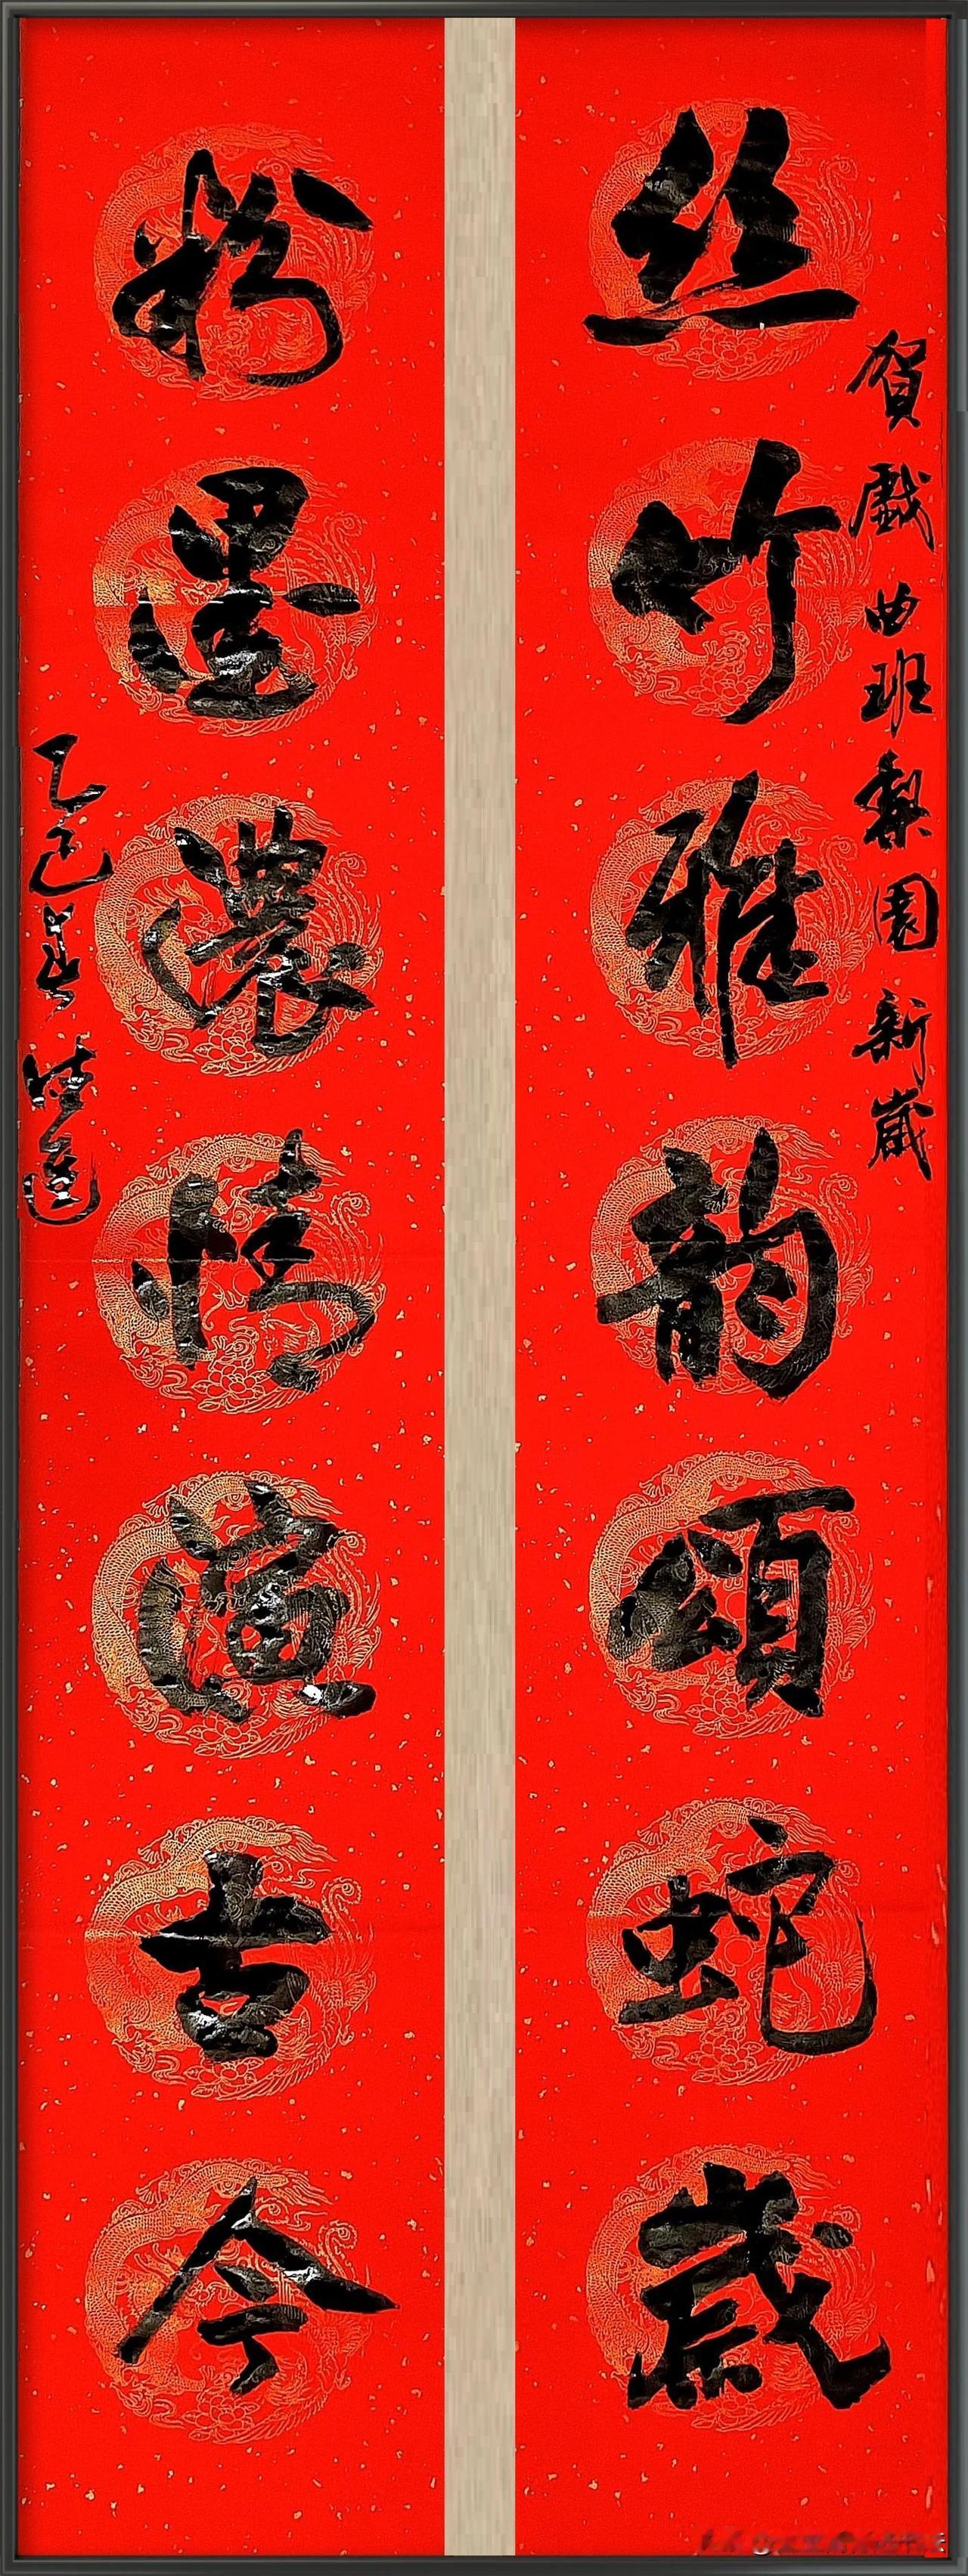 賀戲曲班梨園新歲
丝竹雅韵頌蛇歲
粉墨濃情演古今
乙巳春